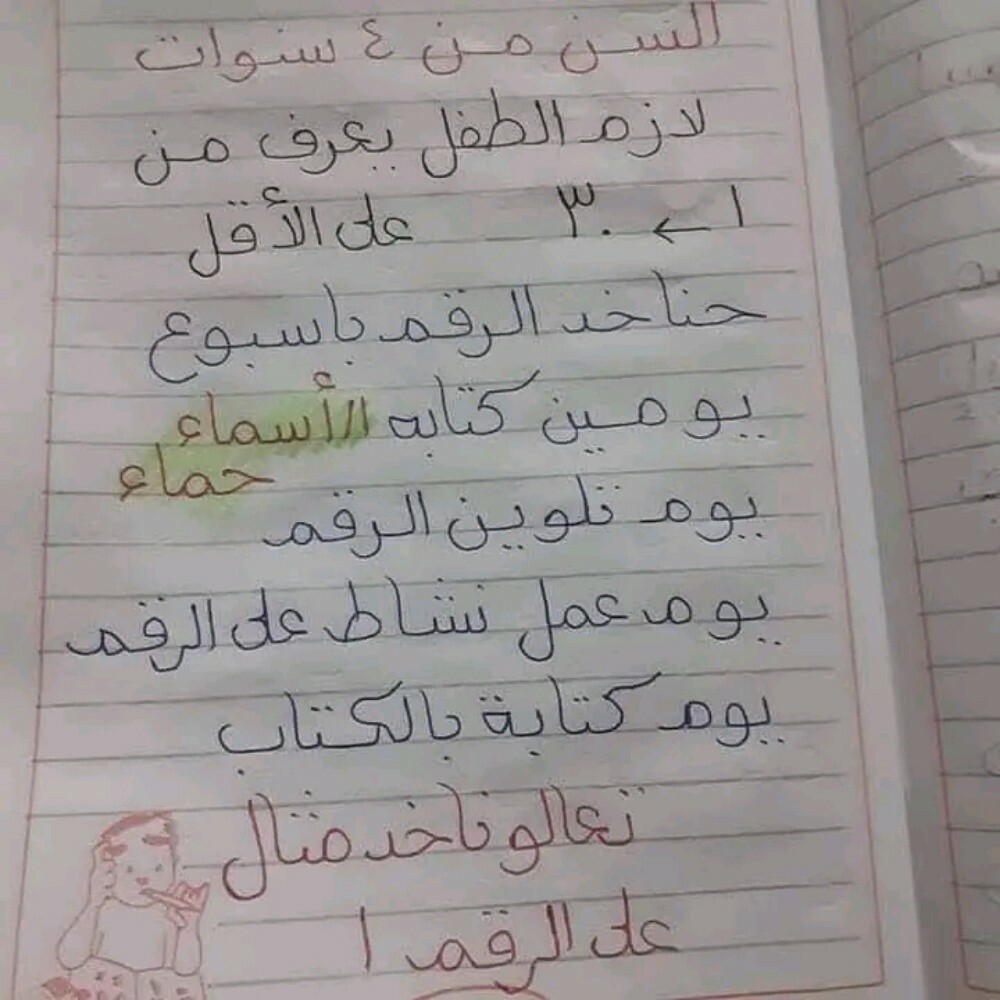 السن من ٤ سنوات
لازم الطفل يعرف من
١ ← ٣٠ على الأقل
حناخد الرقم باسبوع
يومين كتابه الأسماء
حماء
يوم تلوين الرقم
يوم عمل نشاط على الرقم
يوم كتابة بالكتاب
تعالو ناخد مثال
على الرقم ١